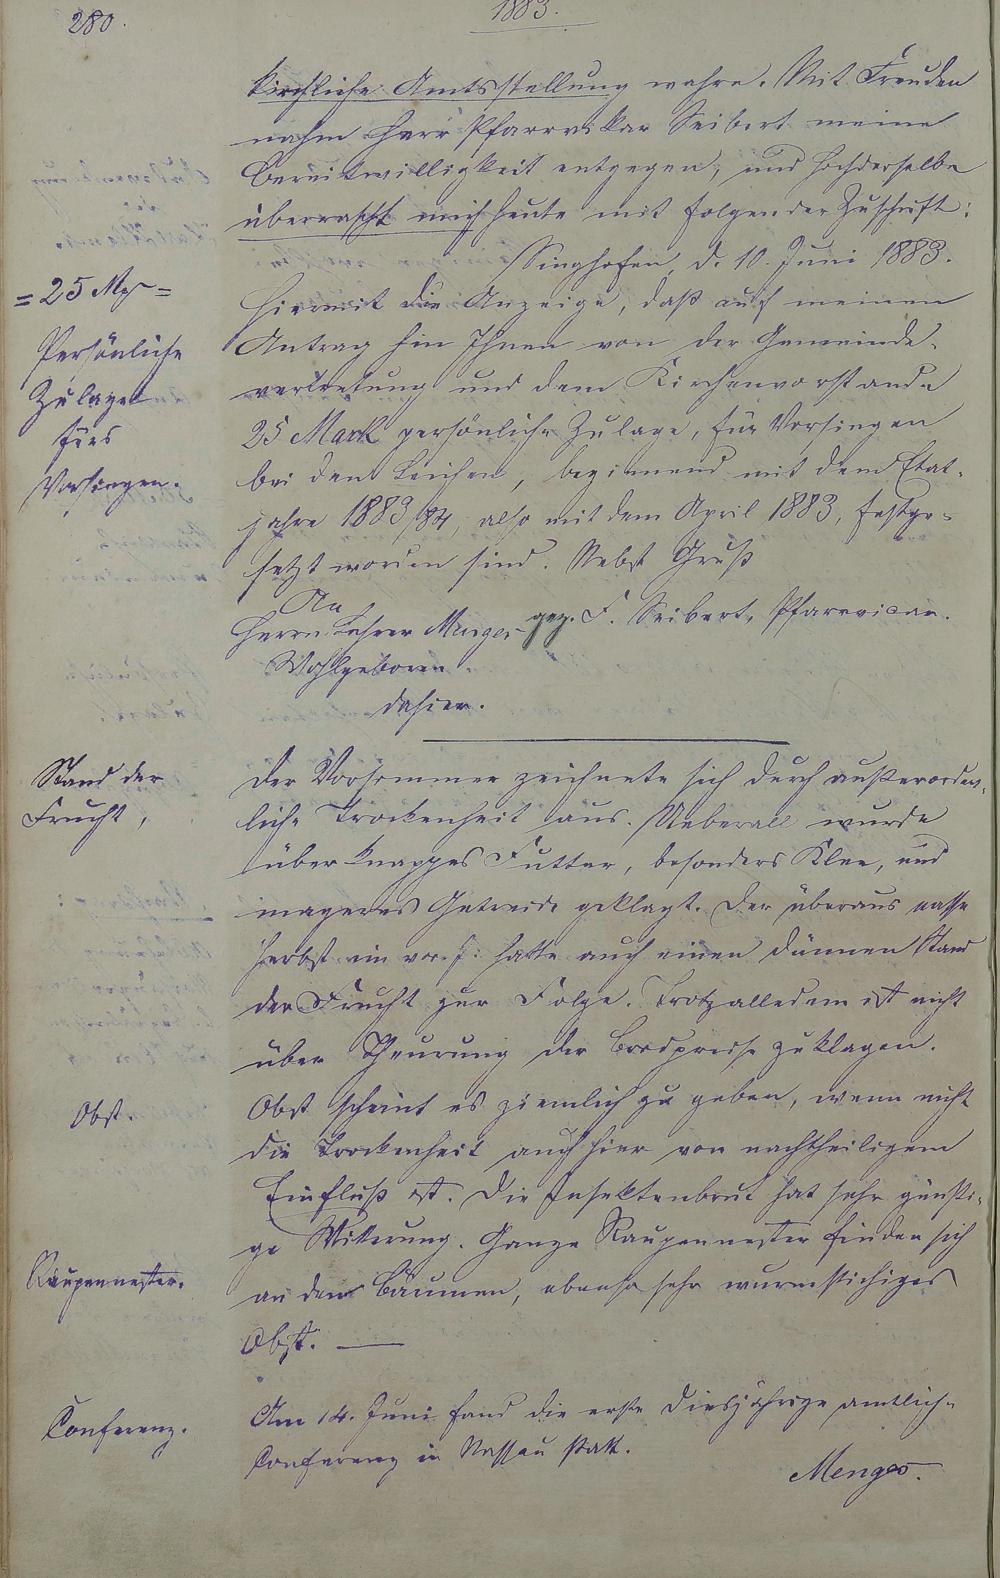 280.
1883.
kirchliche Amtsstellung wahre. Mit Freuden
nahm Herr Pfarrvikar Seibert meine
Bereitwilligkeit entgegen, und hochderselbe
überrascht mich heute mit folgender Zuschrift:
Singhofen, d. 10. Juni 1883.
= 25 Mk =
Persönliche
Zulage
fürs
Vorsingen.
Hiermit die Anzeige, daß auf meinen
Antrag hin Ihnen von der Gemeinde-
vertretung und dem Kirchenvorstande
25 Mark persönliche Zulage, für Vorsingen
bei den Leichen, beginnend mit dem Etat-
jahre 1883/84, also mit dem April 1883, festge-
setzt worden sind. Nebst Gruß
An
Herrn Lehrer Menges
gez. F. Seibert, Pfarrvicar.
Wohlgeboren
dahier.
Stand der
Frucht,
Der Vorsommer zeichnete sich durch außerordent-
liche Trockenheit aus. Ueberall wurde
über knappes Futter, besonders Klee, und
mageres Getreide geklagt. Der überaus nasse
Herbst im vor. J. hatte auch einen dünnen Stand
der Frucht zur Folge. Trotz alledem ist nicht
über Theurung der Brodpreise zu klagen.
Obst.
Obst scheint es ziemlich zu geben, wenn nicht
die Trockenheit auch hier von nachtheiligem
Einfluß ist. Die Insektenbrut hat sehr günsti-
ge Witterung. Ganze Raupennester finden sich
Raupennester.
an den Bäumen, ebenso sehr wurmstichiges
Obst. —
Conferenz.
Am 14. Juni fand die erste diesjährige amtliche
Conferenz in Nassau statt.
Menges.